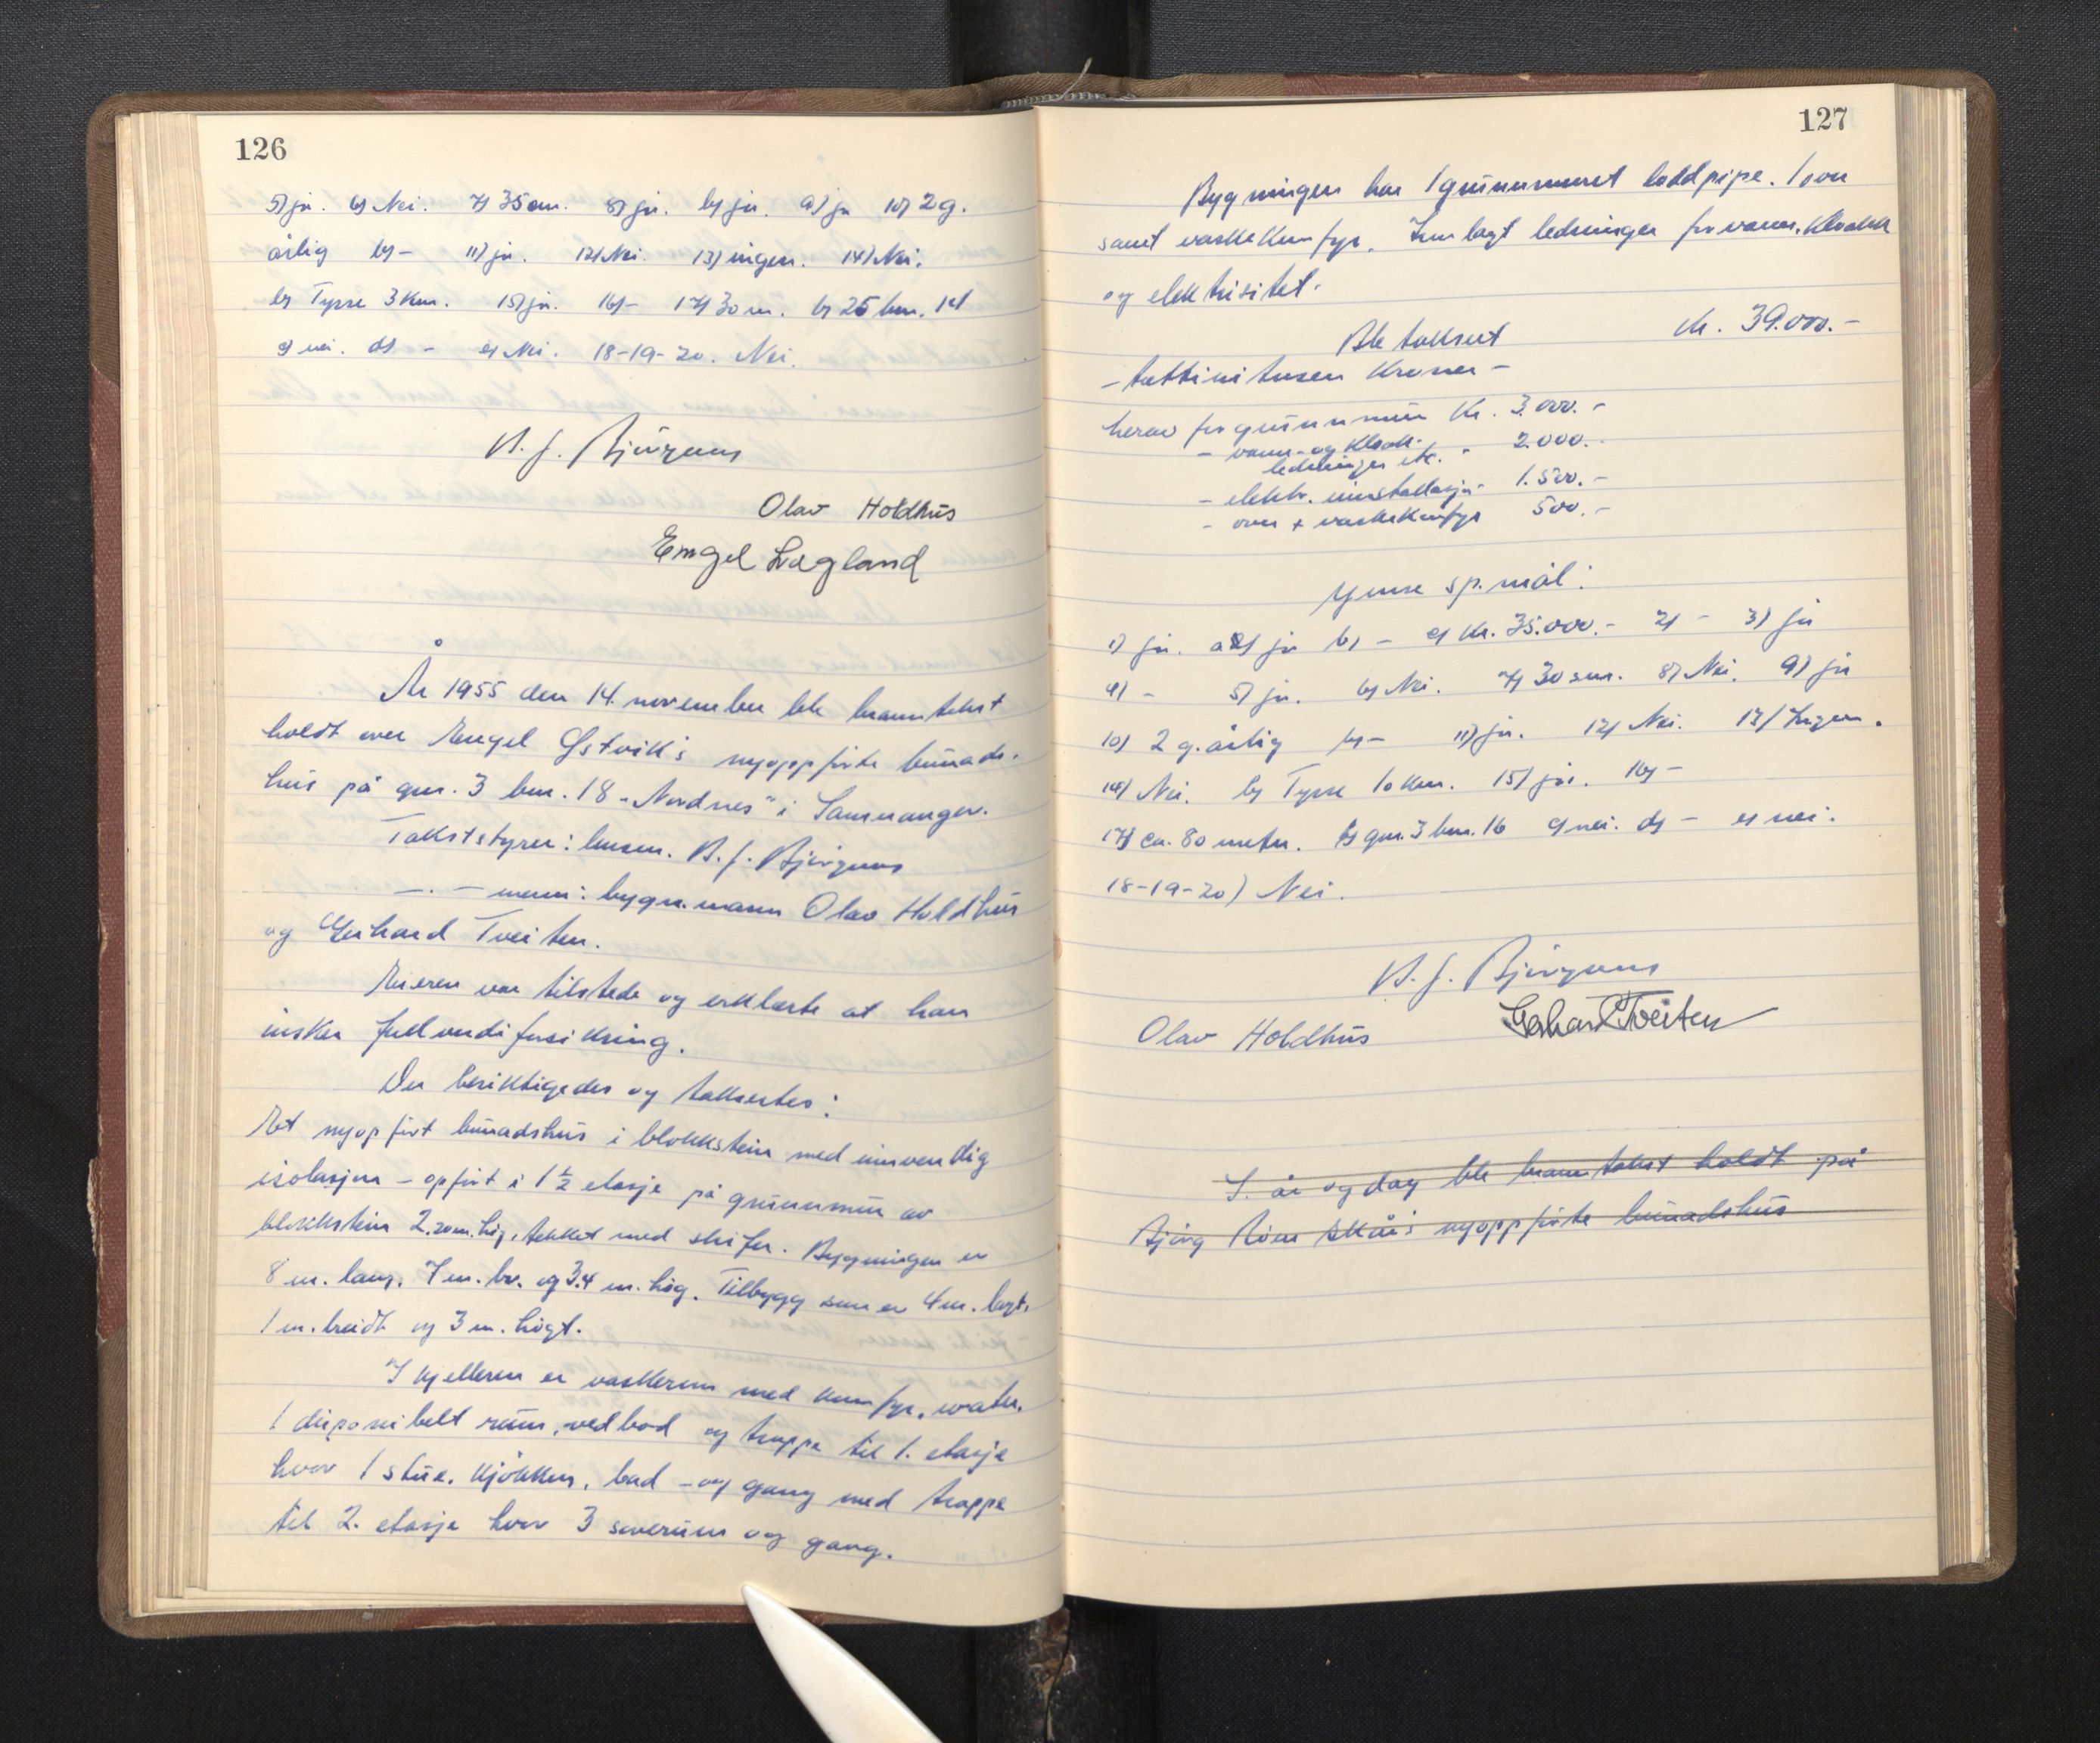 126
5) ja. 6) Nei. 7) 35 cm. 8) ja. b) ja. 9) ja 10) 2 g.
årlig b) - 11) ja. 12) Nei. 13) ingen. 14) Nei.
b) Tysse 3 km. 15) ja. 16) - 17) 30 m. b) 25 bnr. 12
c) nei. d) - e) Nei. 18-19-20. Nei.
Olav Holdhus
Engel Lægland
År 1955 den 14. november ble branntakst
holdt over Engel Østvik's nyoppførte búnads-
hús på gnr. 3 bnr. 18 "Nordnes" i Samnanger.
Takststyrer: lensm. B. J. Bjørgum
— . — menn: bygn.mann Olav Holdhús
og Gerhard Tveiten.
Eieren var tilstede og erklærte at han
ønsker fullverdiforsikring.
Der besiktigedes og takseertes:
Et nyoppført búnadshús i blokkstein med innvendig
isolasjon - oppført i 1 ½ etasje på grúnnmúr av
blokkstein 2.20 m. høg, tekket med skifer. Bygningen er
8 m. lang, 7 m. br. og 3.4 m. høg. Tilbygg som er 4 m. langt,
1 m. breidt og 3 m. høgt.
I kjelleren er vaskerom med komfyr, water,
1 disponibelt rúm, vedbod og trappe til 1. etasje
hvor 1 stúe, kjøkken, bad - og gang med trappe
til 2. etasje hvor 3 soverúm og gang.
127
Bygningen har 1 grúnnmúret loddpipe. 1 ovn
samt vaskekomfyr. Innlagt ledninger for vann, kloakk
og elektrisitet.
Ble taksert kr. 39.000.-
- trettini tusen kroner -
herav for grúnnmúr kr. 3.000.-
- vann- og kloak-
ledninger etc. - 2.000.-
- elektr. innstallasjon 1.500.-
- ovn + vaskekomfyr 500.-
Ymse sp.mål:
1) ja. a) ja b) - c) kr. 35.000.- 2) - 3) ja
4) - 5) ja. 6) Nei. 7) 30 cm. 8) Nei. 9) ja
10) 2 g. årlig b) - 11) ja. 12) Nei. 13) Ingen.
14) Nei. b) Tysse 10 km. 15) ja. 16) -
17) ca. 80 meter. b) gnr. 3 bnr. 16 c) nei. d) - e) nei.
18-19-20) Nei.
B. J. Bjørgum
Olav Holdhús Gerhard Tveiten
S. år og dag ble branntakst holdt på
nyoppførte búnadshús